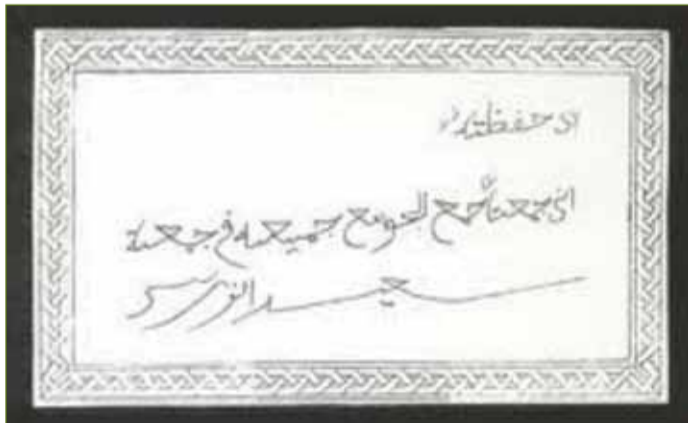 اى حفظته
انى جمعت جمع الجوامع جميعه فى جمعة
سعيد النورسى